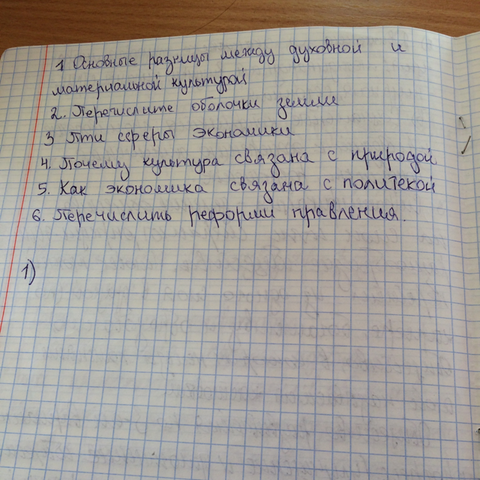 1 Основные разницы между духовной и
материальной культурой
2. Перечислите оболочки земли
3 Пти сферы экономики
4. Почему культура связана с природой
5. Как экономика связана с политекой
6. Перечислить реформи правления.
1)